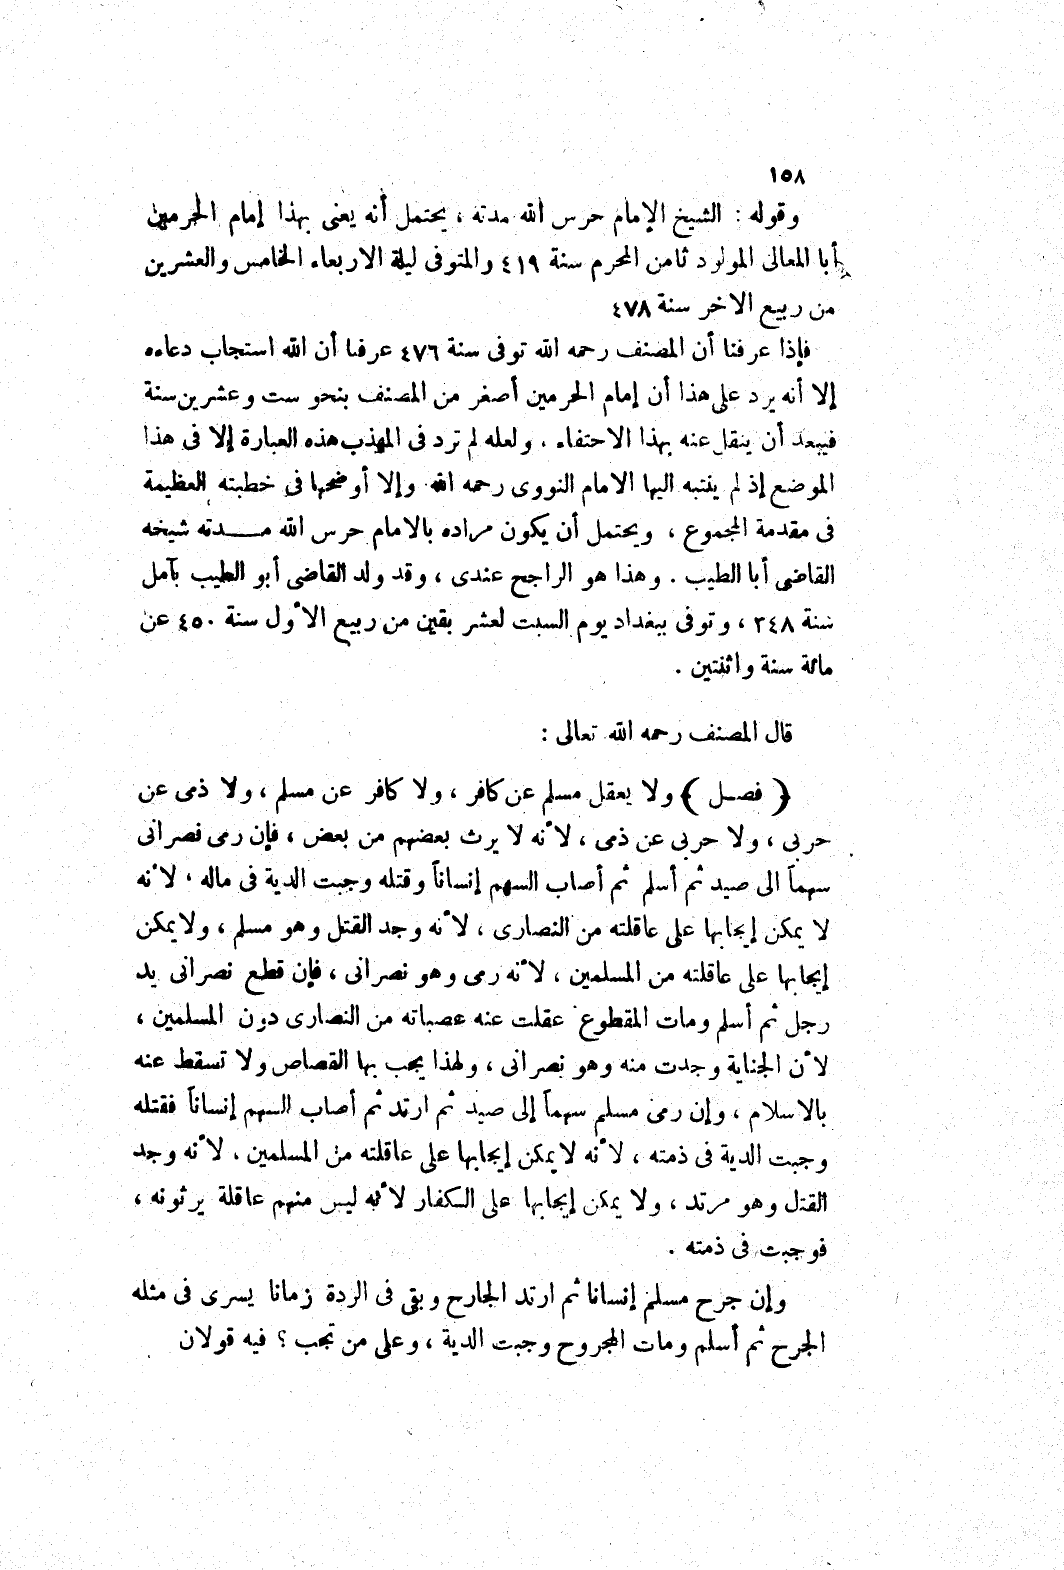 ١٥٨
وقوله : الشيخ الإمام حرس الله مدته ، يحتمل أنه يعنى بهذا إمام الحرمين
أبا المعالى المولود ثامن المحرم سنة ٤١٩ والمتوفى ليلة الاربعاء الخامس والعشرين
من ربيع الاخر سنة ٤٧٨
فإذا عرفنا أن المصنف رحمه الله توفى سنة ٤٧٦ عرفنا أن الله استجاب دعاءه
إلا أنه يرد على هذا أن إمام الحرمين أصغر من المصنف بنحو ست وعشرين سنة
فيبعد أن ينقل عنه بهذا الاحتفاء . ولعله لم ترد فى المهذب هذه العبارة إلا فى هذا
الموضع إذ لم ينتبه اليها الامام النووى رحمه الله وإلا أوضحها فى خطبته العظيمة
فى مقدمة المجموع ، ويحتمل أن يكون مراده بالامام حرس الله مـــدته شيخه
القاضى أبا الطيب . وهذا هو الراجح عندى ، وقد ولد القاضى أبو الطيب بآمل
سنة ٣٤٨ ، وتوفى ببغداد يوم السبت لعشر بقين من ربيع الأول سنة ٤٥٠ عن
مائة سنة واثنتين .
قال المصنف رحمه الله تعالى :
( فصـل ) ولا يعقل مسلم عن كافر ، ولا كافر عن مسلم ، ولا ذمى عن
حربى ، ولا حربى عن ذمى ، لأنه لا يرث بعضهم من بعض ، فإن رمى نصرانى
سهماً الى صيد ثم أسلم ثم أصاب السهم إنساناً وقتله وجبت الدية فى ماله ، لأنه
لا يمكن إيجابها على عاقلته من النصارى ، لأنه وجد القتل وهو مسلم ، ولا يمكن
إيجابها على عاقلته من المسلمين ، لأنه رمى وهو نصرانى ، فإن قطع نصرانى يد
رجل ثم أسلم ومات المقطوع عقلت عنه عصباته من النصارى دون المسلمين ،
لأن الجناية وجدت منه وهو نصرانى ، ولهذا يجب بها القصاص ولا تسقط عنه
بالاسلام ، وإن رمى مسلم سهماً إلى صيد ثم ارتد ثم أصاب السهم إنساناً فقتله
وجبت الدية فى ذمته ، لأنه لا يمكن إيجابها على عاقلته من المسلمين . لأنه وجد
القتل وهو مرتد ، ولا يمكن إيجابها على الكفار لأنه ليس منهم عاقلة يرثونه ،
فوجبت فى ذمته .
وإن جرح مسلم إنسانا ثم ارتد الجارح وبقى فى الردة زمانا يسرى فى مثله
الجرح ثم أسلم ومات المجروح وجبت الدية ، وعلى من تجب ؟ فيه قولان